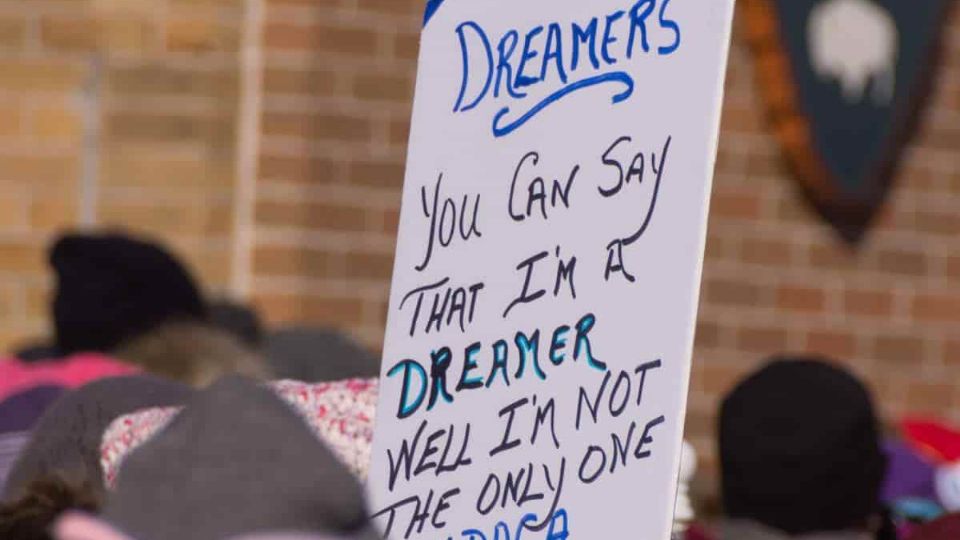 DREAMERS
YOU CAN SAY
THAT I'M A
DREAMER
WELL I'M NOT
THE ONLY ONE
DACA